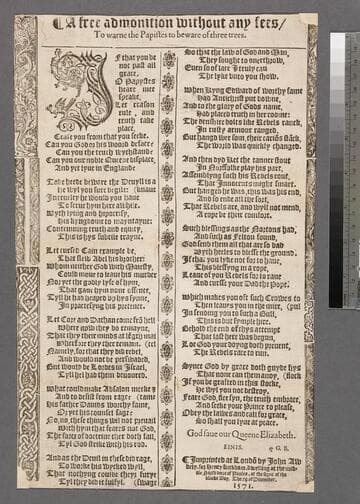 A free admonition without any fees/
To warne the Papistes to beware of three trees.
IF that you be
not past all
grace,
O Papystes
heare mee
speake,
Let reason
rule, and
truth take
place,
Cease you from that you seeke.
Can you Gods his woord deface
Can you the truth wythstand:
Can you our noble Queene displace,
And yet lyue in England:
Take heede beware the Deuyll is a
he wyl you sure begile:
In cruelty he would you haue
To serue hym here a while.
Wyth lying and hypocrisy,
his kyngdome to mayntayne:
Contemning truth and equity,
This is hys subtile trayne.
Let cursed Cain example be,
That slew Abel his brother:
Whom neither God with Maiesty,
Could moue to leaue his murder
Nor yet the godly lyfe of hym,
That gaue hym none offence,
Tyl he had heaped vp hys synne,
In practisyng his pretence.
Let Core and Dathan come fro hell
Where now they do remayne,
That they theyr minds at length may tel
wherfore they thei remain.
Namely, for that they did rebel,
And would not be perswaded,
But woulde be Lordes in Israel,
Tyll hel had them deuoured.
What could make Absalon meeke
And to desist from rage
his father Dauids worthy fame,
Or yet his counsel sage:
No, no, these things wil not preuail
With hym that feares not God.
The sauce of doctrine ther doth fail,
Tyl God stryks with his rod.
And as the Deuil in these did rage,
To worke his wycked wyl,
That nothing coulde theyr fury
Tyl they did it fulfyl. (swage
So that the law of God and Man,
They sought to ouerthrow,
Euen so of late Treuly can
The lyke vnto you show.
When Kyng Edward of worthy fame
Had Antichrist put downe,
And to the glory of Gods name,
Had placed truth in her roome:
The deuelish dolts like Rebels ranck,
In rusty armour ranged,
But hangd were som, their carcas stack,
The World was quickly changed.
And then dyd Ket the tanner stout
In Norffolke play his part,
Assemblyng such his Rebels rout,
That Innocents might smart.
But hanged he was, this was his end
And so ende all the sort,
That Rebels are, and wyll not mend,
A rope be their comfort.
Such blessing as the Nortons had,
And such as Felton found,
God send them all that are so bad
wyth heeles to blesse the ground.
If that you lyke not for to haue,
This blessyng in a rope,
Leaue of you Rebels for to raue
and cursse your Dad the Pope.
Which makes you oft such Crowes to
Then leaues you in the mire, (pul
In sending you to such a Bull,
Thus is but symple hire.
Behold the end of thys attempt
That last here was begun,
Loe God your doyng doth preuent,
The Rebels rare to run.
Synce God by grace doth guyde hys
That none can them annoy, (flock
If you be grafted in this stocke,
He wyl you not destroy.
Feare God, flee syn, the truth embrace,
And seeke your Prince to please,
Obey the lawes and call for grace,
So shall you lyue at peace.
God saue our Queene Elizabeth.
FINIS. ꝙ G. B.
¶ Imprinted at London by John Aw
dely, for Henry Kirkham, dwelling at the midle
North doore of Paules, at the signe of the
blacke Boy. The 12. of December,
1571.